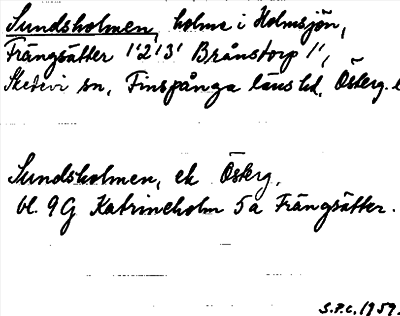 Sundsholmen, holme i Holmsjön,
Frängsätter 1'2'3' Brånstorp 1',
Skedevi sn, Finspånga läns hd, Österg. l
Sundsholmen, ek Österg.
bl. 9G Katrineholm 5a Frängsätter.
S.P.C. 1959.